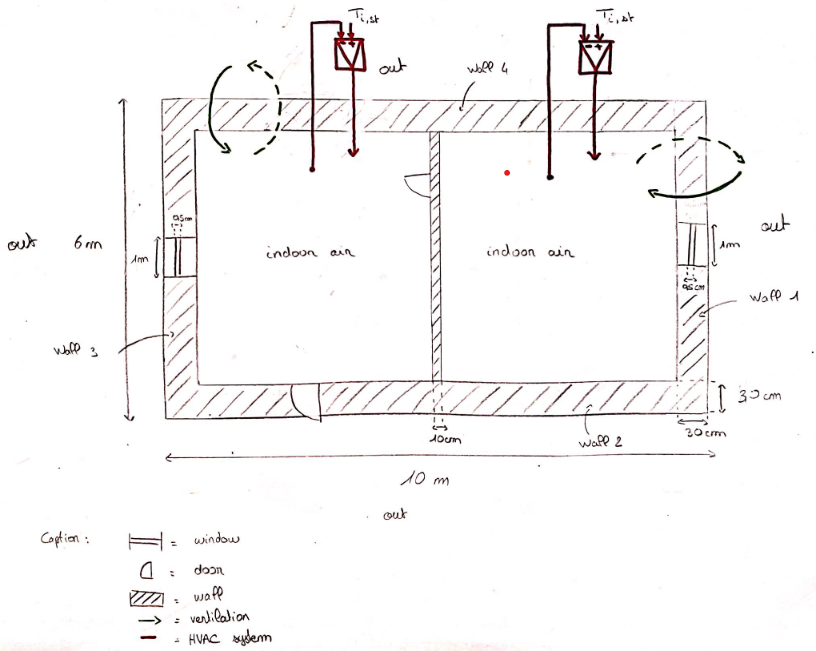 Ti,st
Ti,st
out
wall 4
out
6m
0,5m
1m
indoor air
indoor air
out
1m
0,5cm
wall 1
wall 3
30cm
10cm
wall 2
30cm
10 m
out
Caption :
= window
= door
= wall
= ventilation
= HVAC system